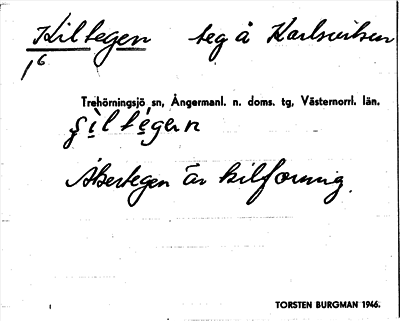 Kiltegen teg å Karlsvilsen
16
Trehörningsjö sn, Ångermanl. n. doms. tg, Västernorrl. län.
Åkertegen är kilformig.
TORSTEN BURGMAN 1946.